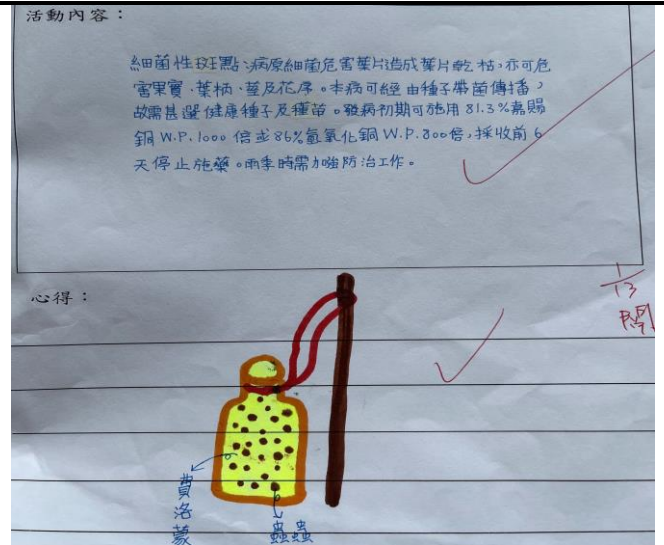 活動內容：
細菌性斑點：病原細菌危害葉片造成葉片乾枯，亦可危
害果實、葉柄、莖及花序。本病可經由種子帶菌傳播，
故需甚選健康種子及種苗。發病初期可施用81.3%嘉賜
銅W.P.1000倍或86%氫氧化銅W.P.800倍，採收前6
天停止施藥。雨季時需加強防治工作。
心得：
1/13
閱
費洛蒙
蟲蟲